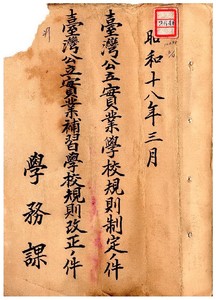 昭和十八年三月
臺灣公立實業學校規則制定ノ件
臺灣公立實業補習學校規則改正ノ件
學務課